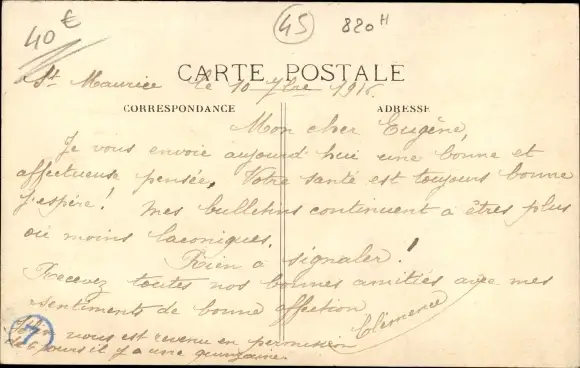 40€
45
820 H
CARTE POSTALE
St Maurice le 10 7bre 1916.
CORRESPONDANCE
ADRESSE
Mon cher Eugène,
Je vous envoie aujourd'hui une bonne et
affectueuse pensée. Votre santé est toujours bonne
j'espère! mes bulletins continuent à êtres plus
où moins laconiques.
Rien à signaler!
Recevez toutes nos bonnes amitiés avec mes
sentiments de bonne affection
Clémence
7
nous est revenu en permission
de 6 jours il y a une quinzaine.